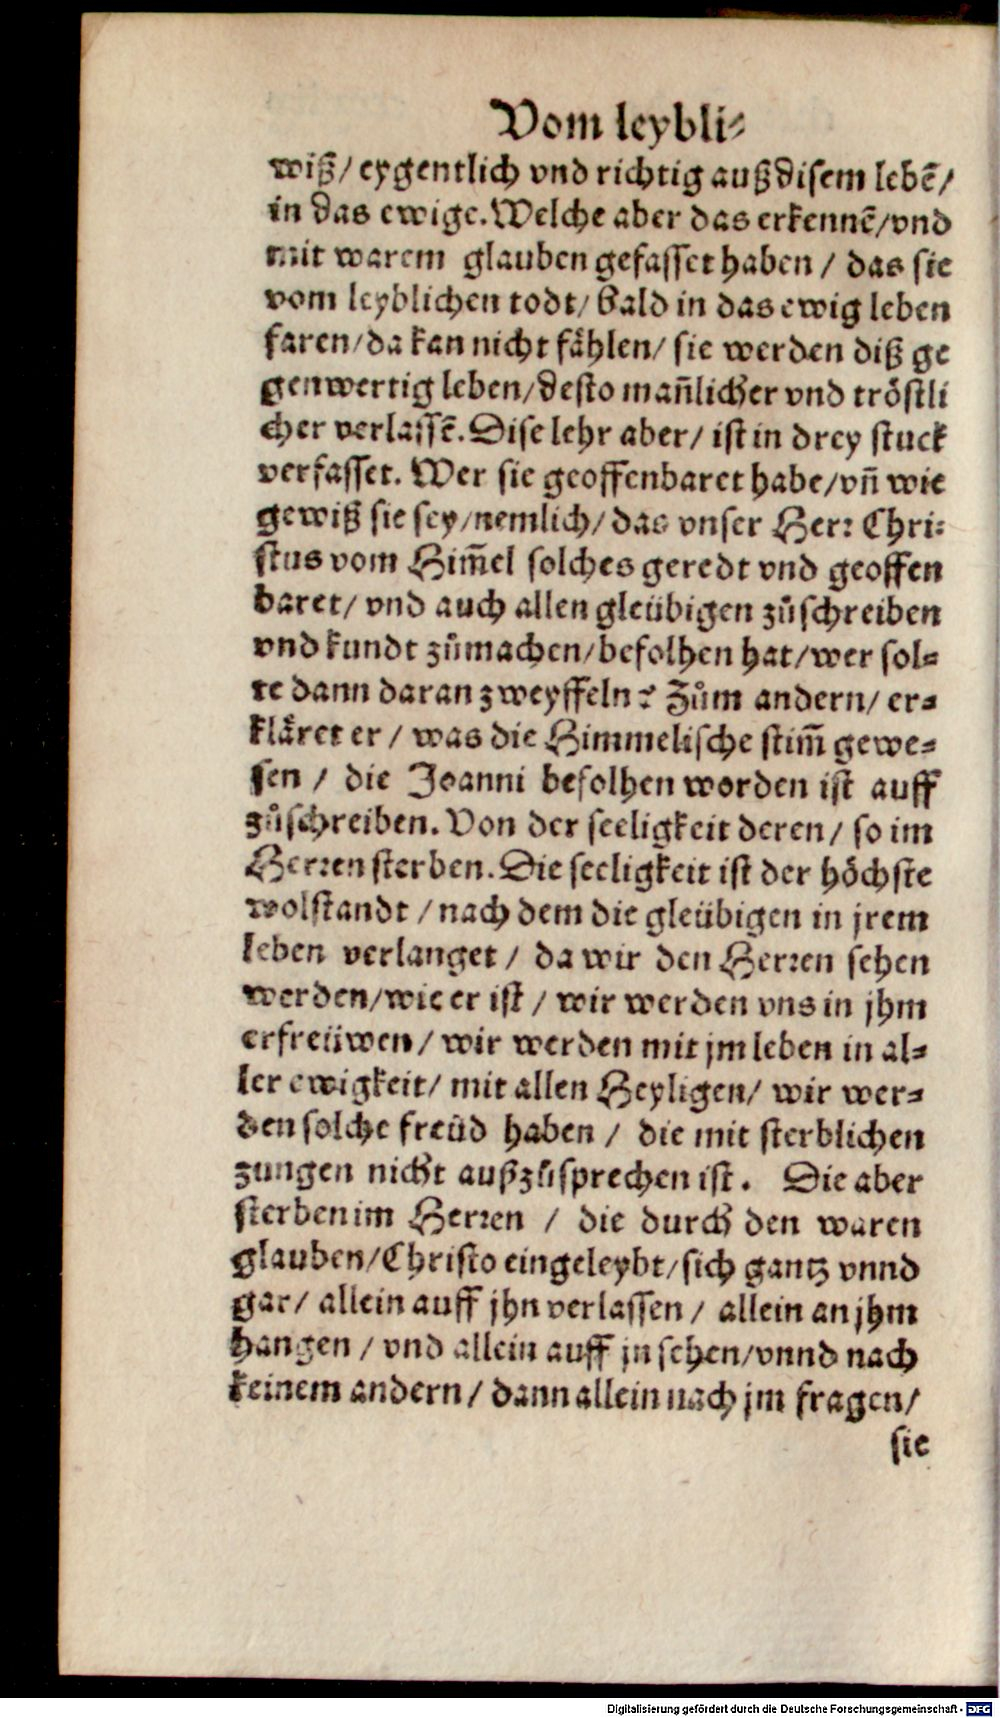 Vom leybli⸗
wiß/ eygentlich vnd richtig auß disem lebẽ/
in das ewige. Welche aber das erkennẽ/ vnd
mit warem glauben gefasset haben / das sie
vom leyblichen todt/ bald in das ewig leben
faren/ da kan nicht fåhlen/ sie werden diß ge
genwertig leben/ desto mañlicher vnd tröstli
cher verlassẽ. Dise lehr aber/ ist in drey stuck
verfasset. Wer sie geoffenbaret habe/ vñ wie
gewiß sie sey/ nemlich/ das vnser Herr Chri⸗
stus vom Him̃el solches geredt vnd geoffen
baret/ vnd auch allen gleübigen zůschreiben
vnd kundt zůmachen/ befolhen hat/ wer sol⸗
te dann daran zweyffeln? Zům andern/ er⸗
kläret er / was die Himmelische stim̃ gewe⸗
sen / die Joanni befolhen worden ist auff
zůschreiben. Von der seeligkeit deren/ so im
Herren sterben. Die seeligkeit ist der höchste
wolstandt / nach dem die gleübigen in jrem
leben verlanget / da wir den Herren sehen
werden/ wie er ist / wir werden vns in jhm
erfreüwen/ wir werden mit jm leben in al⸗
ler ewigkeit/ mit allen Heyligen/ wir wer⸗
den solche freüd haben / die mit sterblichen
zungen nicht außzůsprechen ist. Die aber
sterben im Herren / die durch den waren
glauben/ Christo eingeleybt/ sich gantz vnnd
gar/ allein auff jhn verlassen / allein an jhm
hangen / vnd allein auff jn sehen/ vnnd nach
keinem andern / dann allein nach jm fragen/
sie
Digitalisierung gefördert durch die Deutsche Forschungsgemeinschaft - DFG